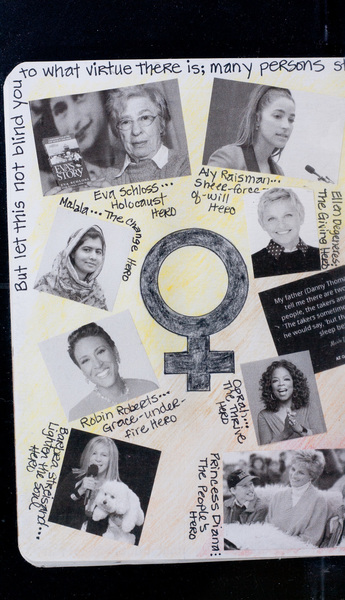 But let this not blind you
to what virtue there is; many persons st
STORY
Eva Schloss...
Holocaust
Hero
Aly Raisman...
Sheer-force-
of-will
Hero
Malala... The Change
Hero
Ellen Degeneres:
The Giving Hero
My father (Danny Thoma
tell me there are two
people, the takers and
"The takers sometim
he would say, 'but th
sleep be
Robin Roberts...
Grace-under-
Fire Hero
Oprah...
The Thrive
Hero
Barbra Streisand...
Lighten the Soul
Hero
Princess Diana:
The People's
Hero